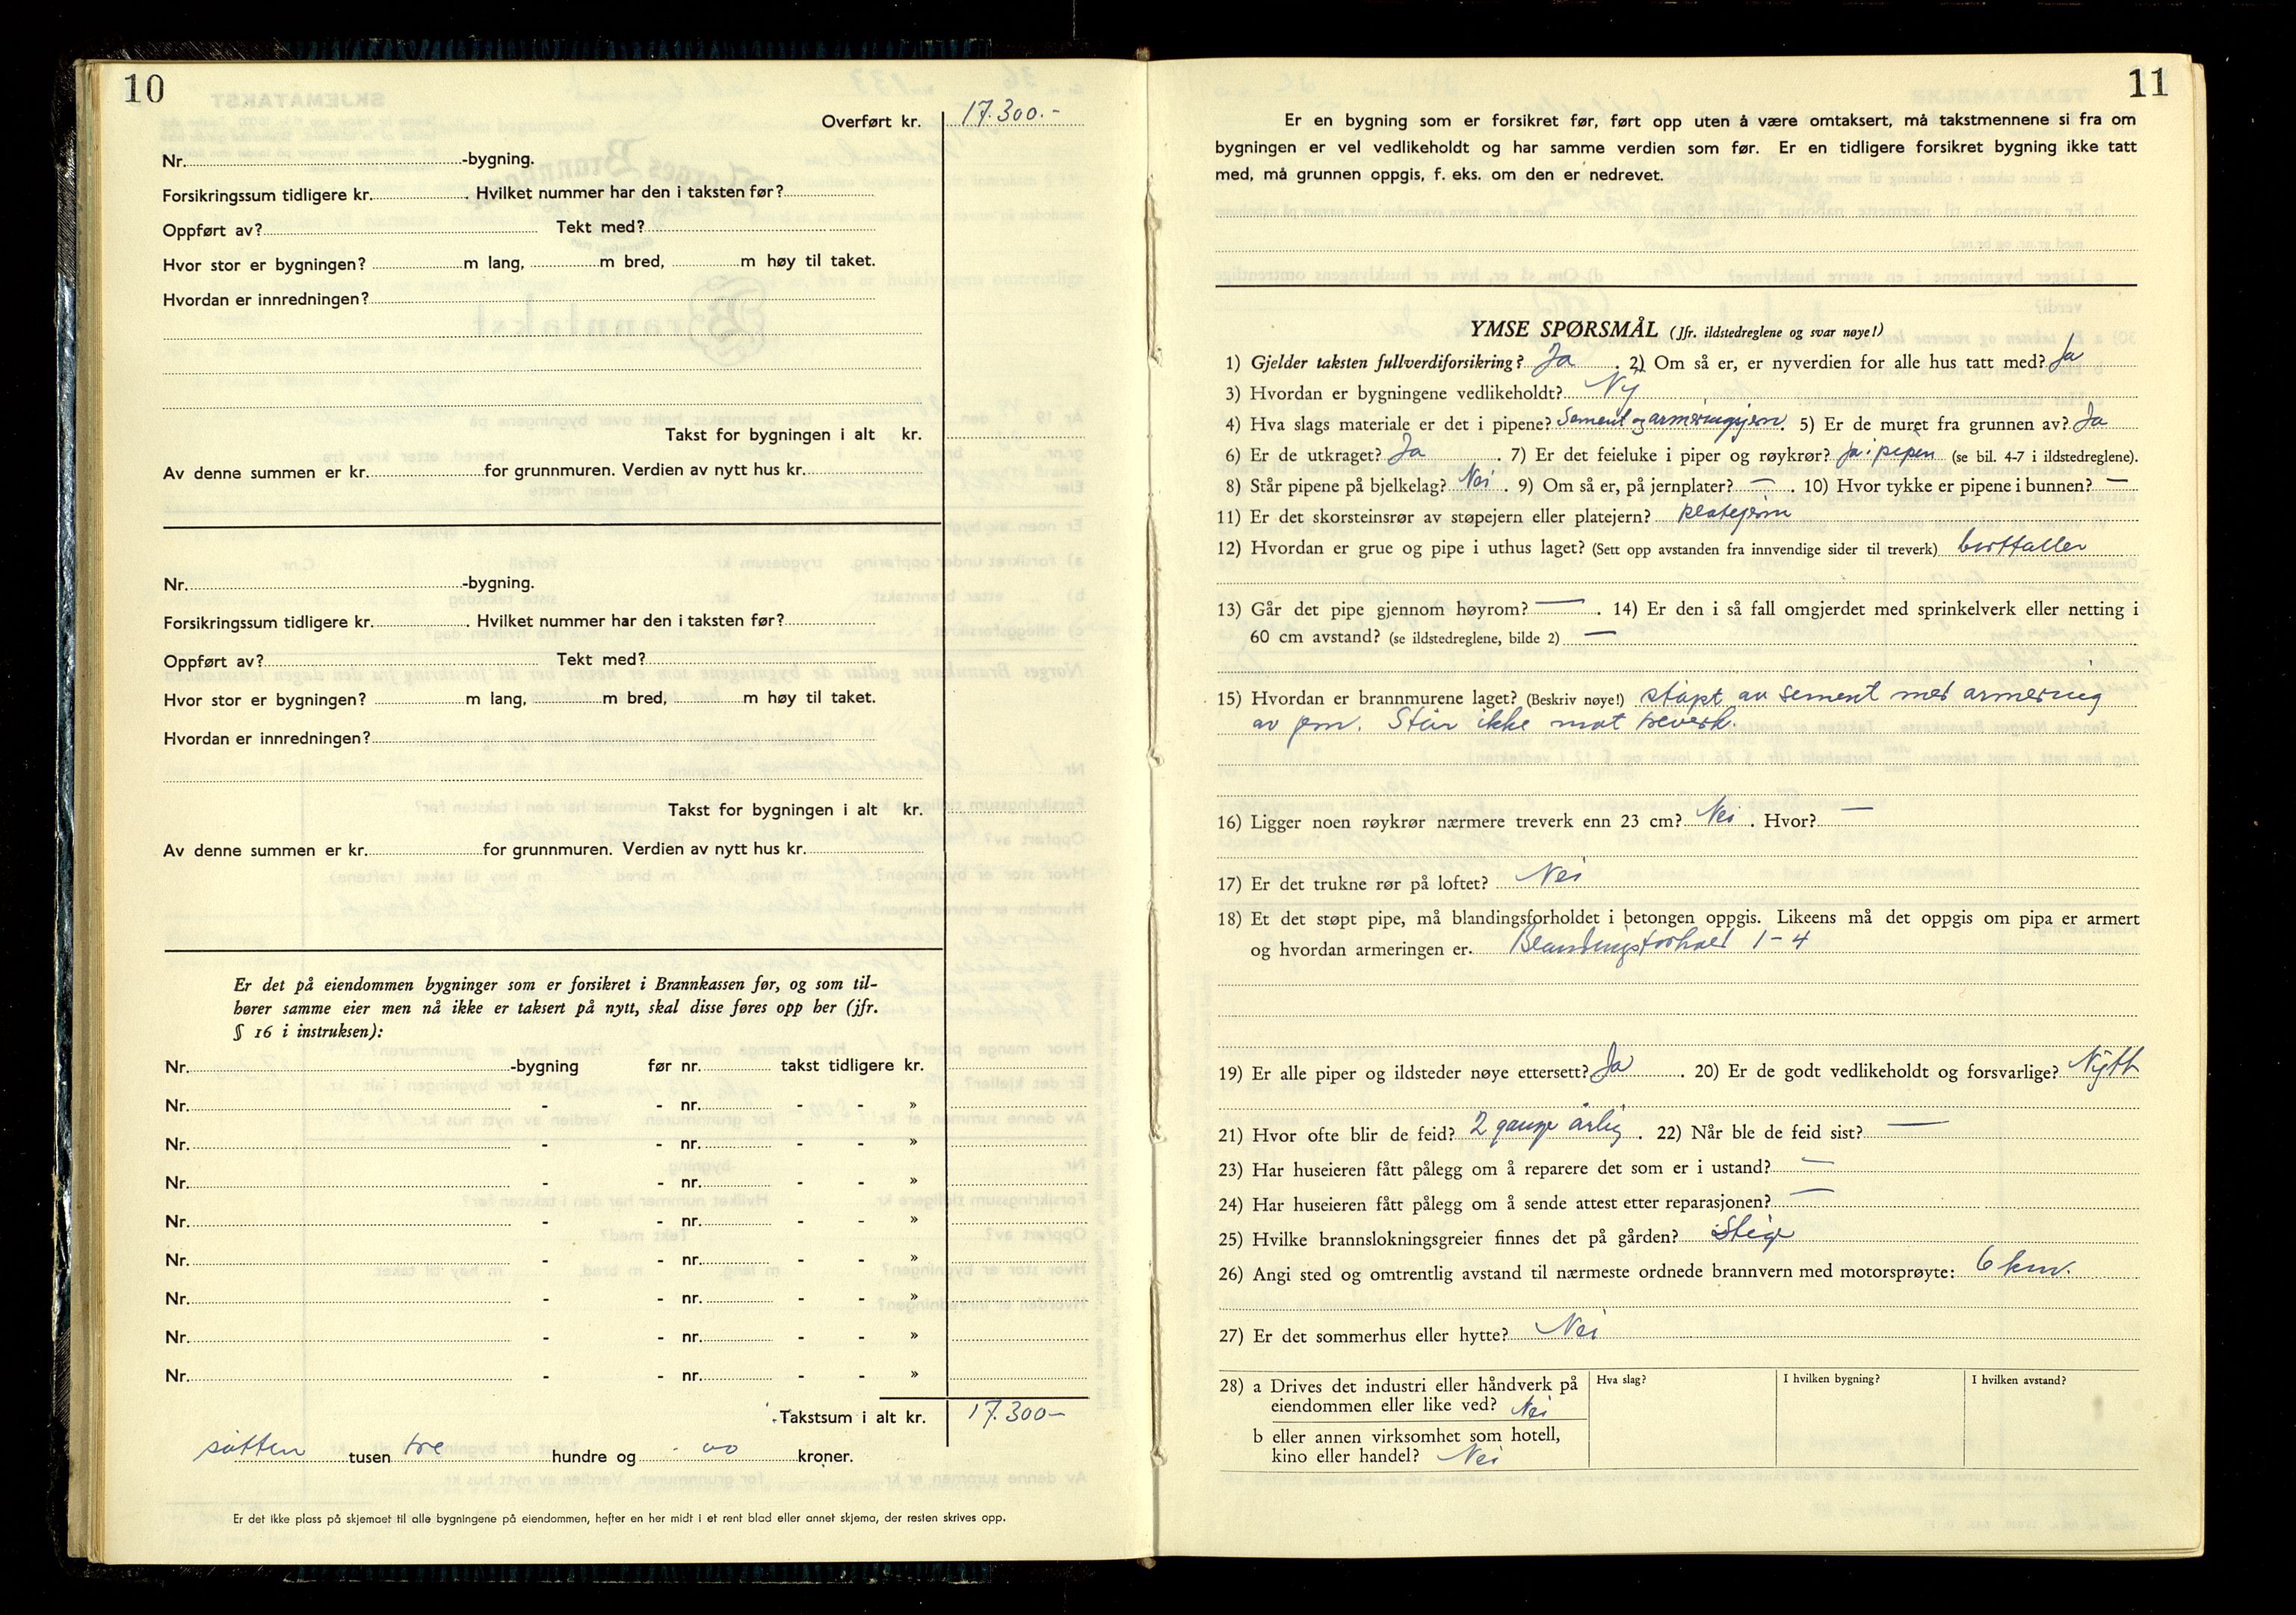 10
Overført kr. 17.300.-
Nr. -bygning.
Forsikringssum tidligere kr. . Hvilket nummer har den i taksten før?
Oppført av? Tekt med?
Hvor stor er bygningen? m lang, m bred, m høy til taket.
Hvordan er innredningen?
Takst for bygningen i alt kr.
Av denne summen er kr. for grunnmuren. Verdien av nytt hus kr.
Nr. -bygning.
Forsikringssum tidligere kr. . Hvilket nummer har den i taksten før?
Oppført av? Tekt med?
Hvor stor er bygningen? m lang, m bred, m høy til taket.
Hvordan er innredningen?
Takst for bygningen i alt kr.
Av denne summen er kr. for grunnmuren. Verdien av nytt hus kr.
Er det på eiendommen bygninger som er forsikret i Brannkassen før, og som til-
hører samme eier men nå ikke er taksert på nytt, skal disse føres opp her (jfr.
§ 16 i instruksen):
Nr. -bygning før nr. takst tidligere kr.
Nr. - - nr. - - »
Nr. - - nr. - - »
Nr. - - nr. - - »
Nr. - - nr. - - »
Nr. - - nr. - - »
Nr. - - nr. - - »
Nr. - - nr. - - »
Nr. - - nr. - - »
Takstsum i alt kr. 17.300-
søtten tusen tre hundre og oo kroner.
Er det ikke plass på skjemaet til alle bygningene på eiendommen, hefter en her midt i et rent blad eller annet skjema, der resten skrives opp.
11
Er en bygning som er forsikret før, ført opp uten å være omtaksert, må takstmennene si fra om
bygningen er vel vedlikeholdt og har samme verdien som før. Er en tidligere forsikret bygning ikke tatt
med, må grunnen oppgis, f. eks. om den er nedrevet.
YMSE SPØRSMÅL (Jfr. ildstedreglene og svar nøye!)
1) Gjelder taksten fullverdiforsikring? Ja . 2) Om så er, er nyverdien for alle hus tatt med? Ja
3) Hvordan er bygningene vedlikeholdt? Ny
4) Hva slags materiale er det i pipene? Sement og armeringsjern. 5) Er de muret fra grunnen av? Ja
6) Er de utkraget? Ja . 7) Er det feieluke i piper og røykrør? Ja i pipen (se bil. 4-7 i ildstedreglene).
8) Står pipene på bjelkelag? Nei . 9) Om så er, på jernplater? — . 10) Hvor tykke er pipene i bunnen? —
11) Er det skorsteinsrør av støpejern eller platejern? platejern
12) Hvordan er grue og pipe i uthus laget? (Sett opp avstanden fra innvendige sider til treverk) bortfaller
13) Går det pipe gjennom høyrom? — . 14) Er den i så fall omgjerdet med sprinkelverk eller netting i
60 cm avstand? (se ildstedreglene, bilde 2) —
15) Hvordan er brannmurene laget? (Beskriv nøye!) støpt av sement med armering
av jern. Står ikke mot treverk.
16) Ligger noen røykrør nærmere treverk enn 23 cm? Nei . Hvor? —
17) Er det trukne rør på loftet? Nei
18) Et det støpt pipe, må blandingsforholdet i betongen oppgis. Likeens må det oppgis om pipa er armert
og hvordan armeringen er. Blandingsforhold 1-4
19) Er alle piper og ildsteder nøye ettersett? Ja . 20) Er de godt vedlikeholdt og forsvarlige? Nytt
21) Hvor ofte blir de feid? 2 gange årlig . 22) Når ble de feid sist? —
23) Har huseieren fått pålegg om å reparere det som er i ustand? —
24) Har huseieren fått pålegg om å sende attest etter reparasjonen? —
25) Hvilke brannslokningsgreier finnes det på gården? Stige
26) Angi sted og omtrentlig avstand til nærmeste ordnede brannvern med motorsprøyte: 6 km.
27) Er det sommerhus eller hytte? Nei
28) a Drives det industri eller håndverk på
eiendommen eller like ved? Nei
b eller annen virksomhet som hotell,
kino eller handel? Nei
Hva slag?
I hvilken bygning?
I hvilken avstand?